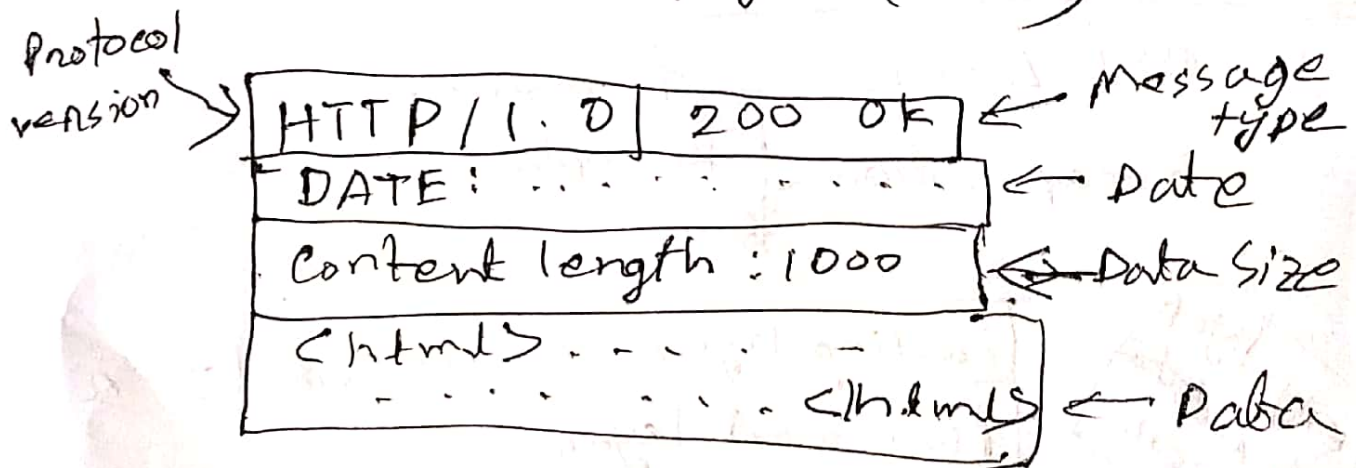 Protocol
version
HTTP/1.0 200 Ok
Message
type
DATE: . . . . . . . . .
Date
Content length : 1000
Data Size
<html> . . . . . -
. . . . . . . </html>
Data